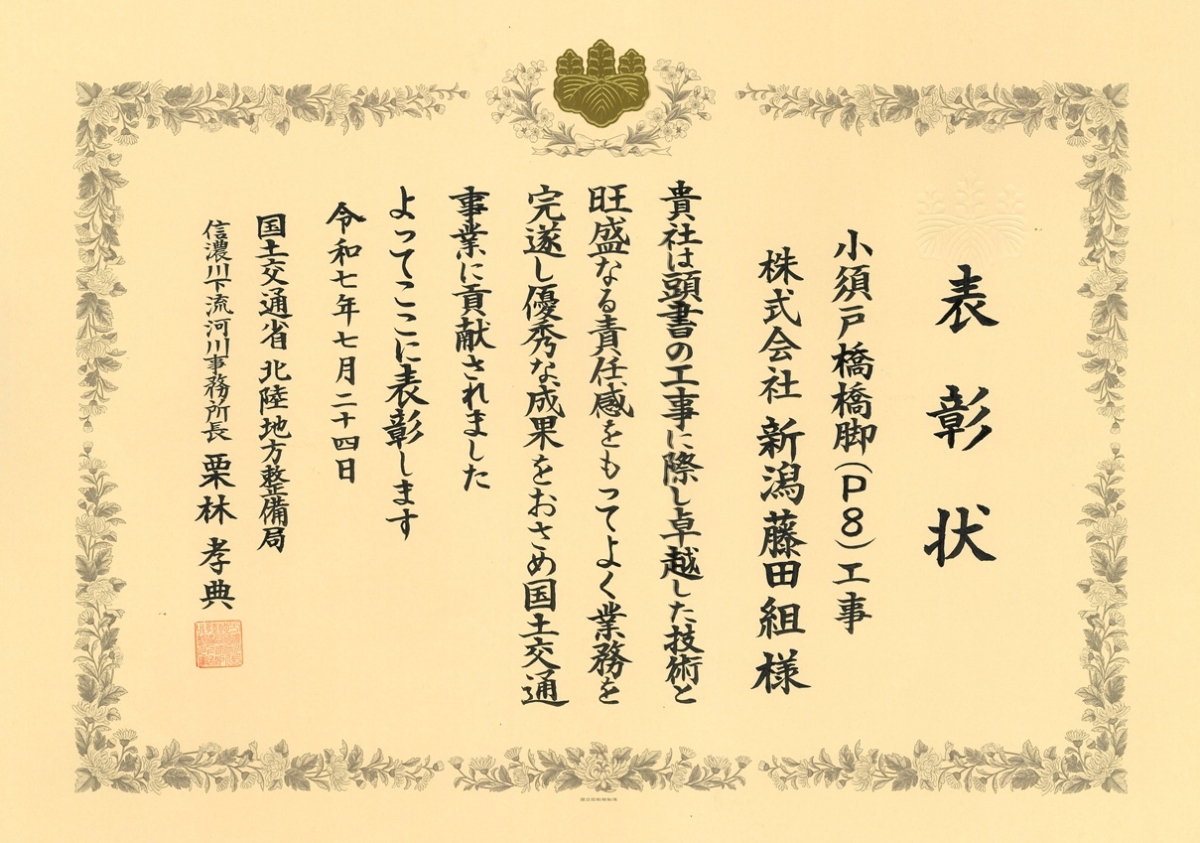 表彰状
小須戸橋橋脚(P8)工事
株式会社 新潟藤田組 様
貴社は頭書の工事に際し卓越した技術と
旺盛なる責任感をもってよく業務を
完遂し優秀な成果をおさめ国土交通
事業に貢献されました
よってここに表彰します
令和七年七月二十四日
国土交通省 北陸地方整備局
信濃川下流河川事務所長 栗林孝典